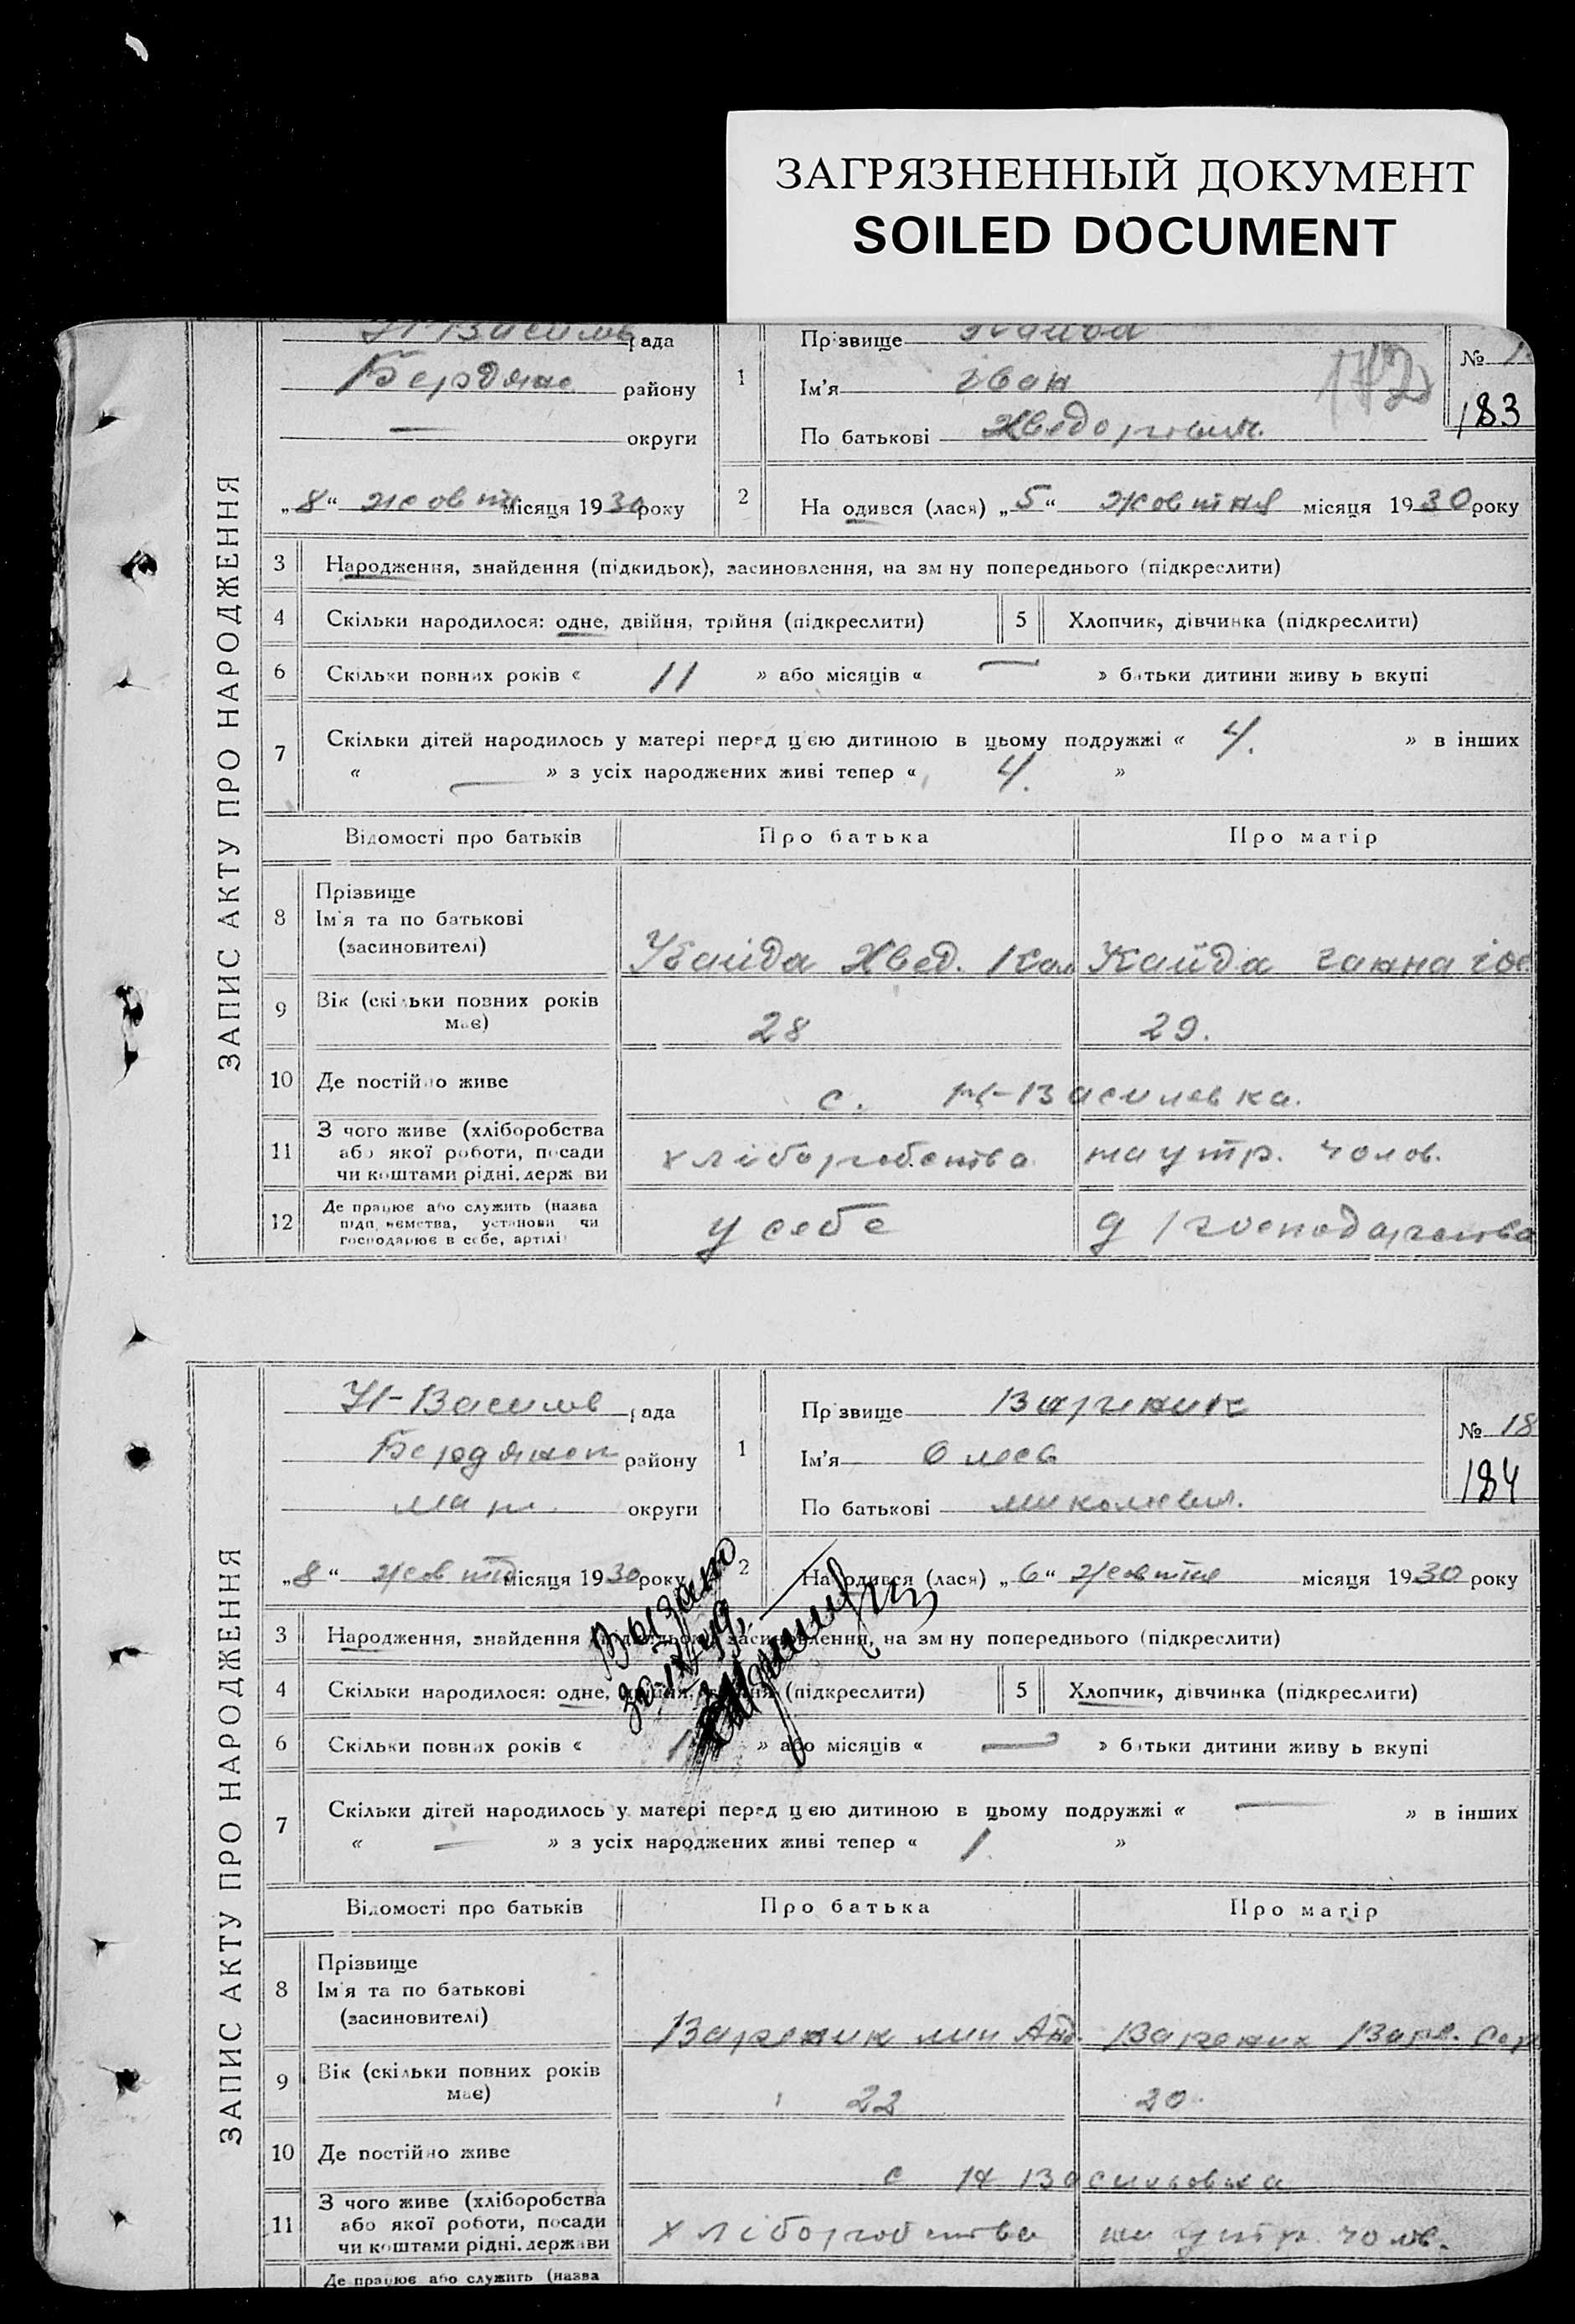 ЗАГРЯЗНЕННЫЙ ДОКУМЕНТ
SOILED DOCUMENT
ЗАПИС АКТУ ПРО НАРОДЖЕННЯ
Н-Василів рада
Бердянс району
— округи
„8“ жовтн місяця 1930 року
1 Прізвище Кайда
Ім'я Іван
По батькові Хведорович.
№ 1
183
2 Народився (лася) „5“ жовтня місяця 1930 року
3 Народження, знайдення (підкидьок), засиновлення, на зміну попереднього (підкреслити)
4 Скільки народилося: одне, двійня, трійня (підкреслити) 5 Хлопчик, дівчинка (підкреслити)
6 Скільки повних років « 11 » або місяців « — » батьки дитини живуть вкупі
7 Скільки дітей народилось у матері перед цією дитиною в цьому подружжі « 4. » в інших
« — » з усіх народжених живі тепер « 4. »
Відомості про батьків Про батька Про матір
8 Прізвище
Ім'я та по батькові
(засиновителі)
Кайда Хвед. Кал Кайда Ганна Іос
9 Вік (скільки повних років має) 28 29.
10 Де постійно живе с. Н-Василевка.
11 З чого живе (хліборобства
або якої роботи, посади
чи коштами рідні, держави
хліборобства на утр. чолов.
12 Де працює або служить (назва
підприємства, установи чи
господарює в себе, артілі
у себе д господарства
ЗАПИС АКТУ ПРО НАРОДЖЕННЯ
Н-Василів рада
Бердянск району
округи
„8“ жовтн місяця 1930 року
1 Прізвище Вареник
Ім'я Олекс
По батькові Миколаєвич.
№ 18
184
2 Народився (лася) „6“ жовтня місяця 1930 року
3 Народження, знайдення (підкидьок), засиновлення, на зміну попереднього (підкреслити)
4 Скільки народилося: одне, двійня, трійня (підкреслити) 5 Хлопчик, дівчинка (підкреслити)
6 Скільки повних років « 1 » або місяців « — » батьки дитини живуть вкупі
7 Скільки дітей народилось у матері перед цією дитиною в цьому подружжі « — » в інших
« — » з усіх народжених живі тепер « 1. »
Відомості про батьків Про батька Про матір
8 Прізвище
Ім'я та по батькові
(засиновителі)
Вареник Мик Анд. Вареник Варв. Сер
9 Вік (скільки повних років має) 22 20.
10 Де постійно живе с Н Васильовка
11 З чого живе (хліборобства
або якої роботи, посади
чи коштами рідні, держави
хліборобства на утр. чолов.
Де працює або служить (назва